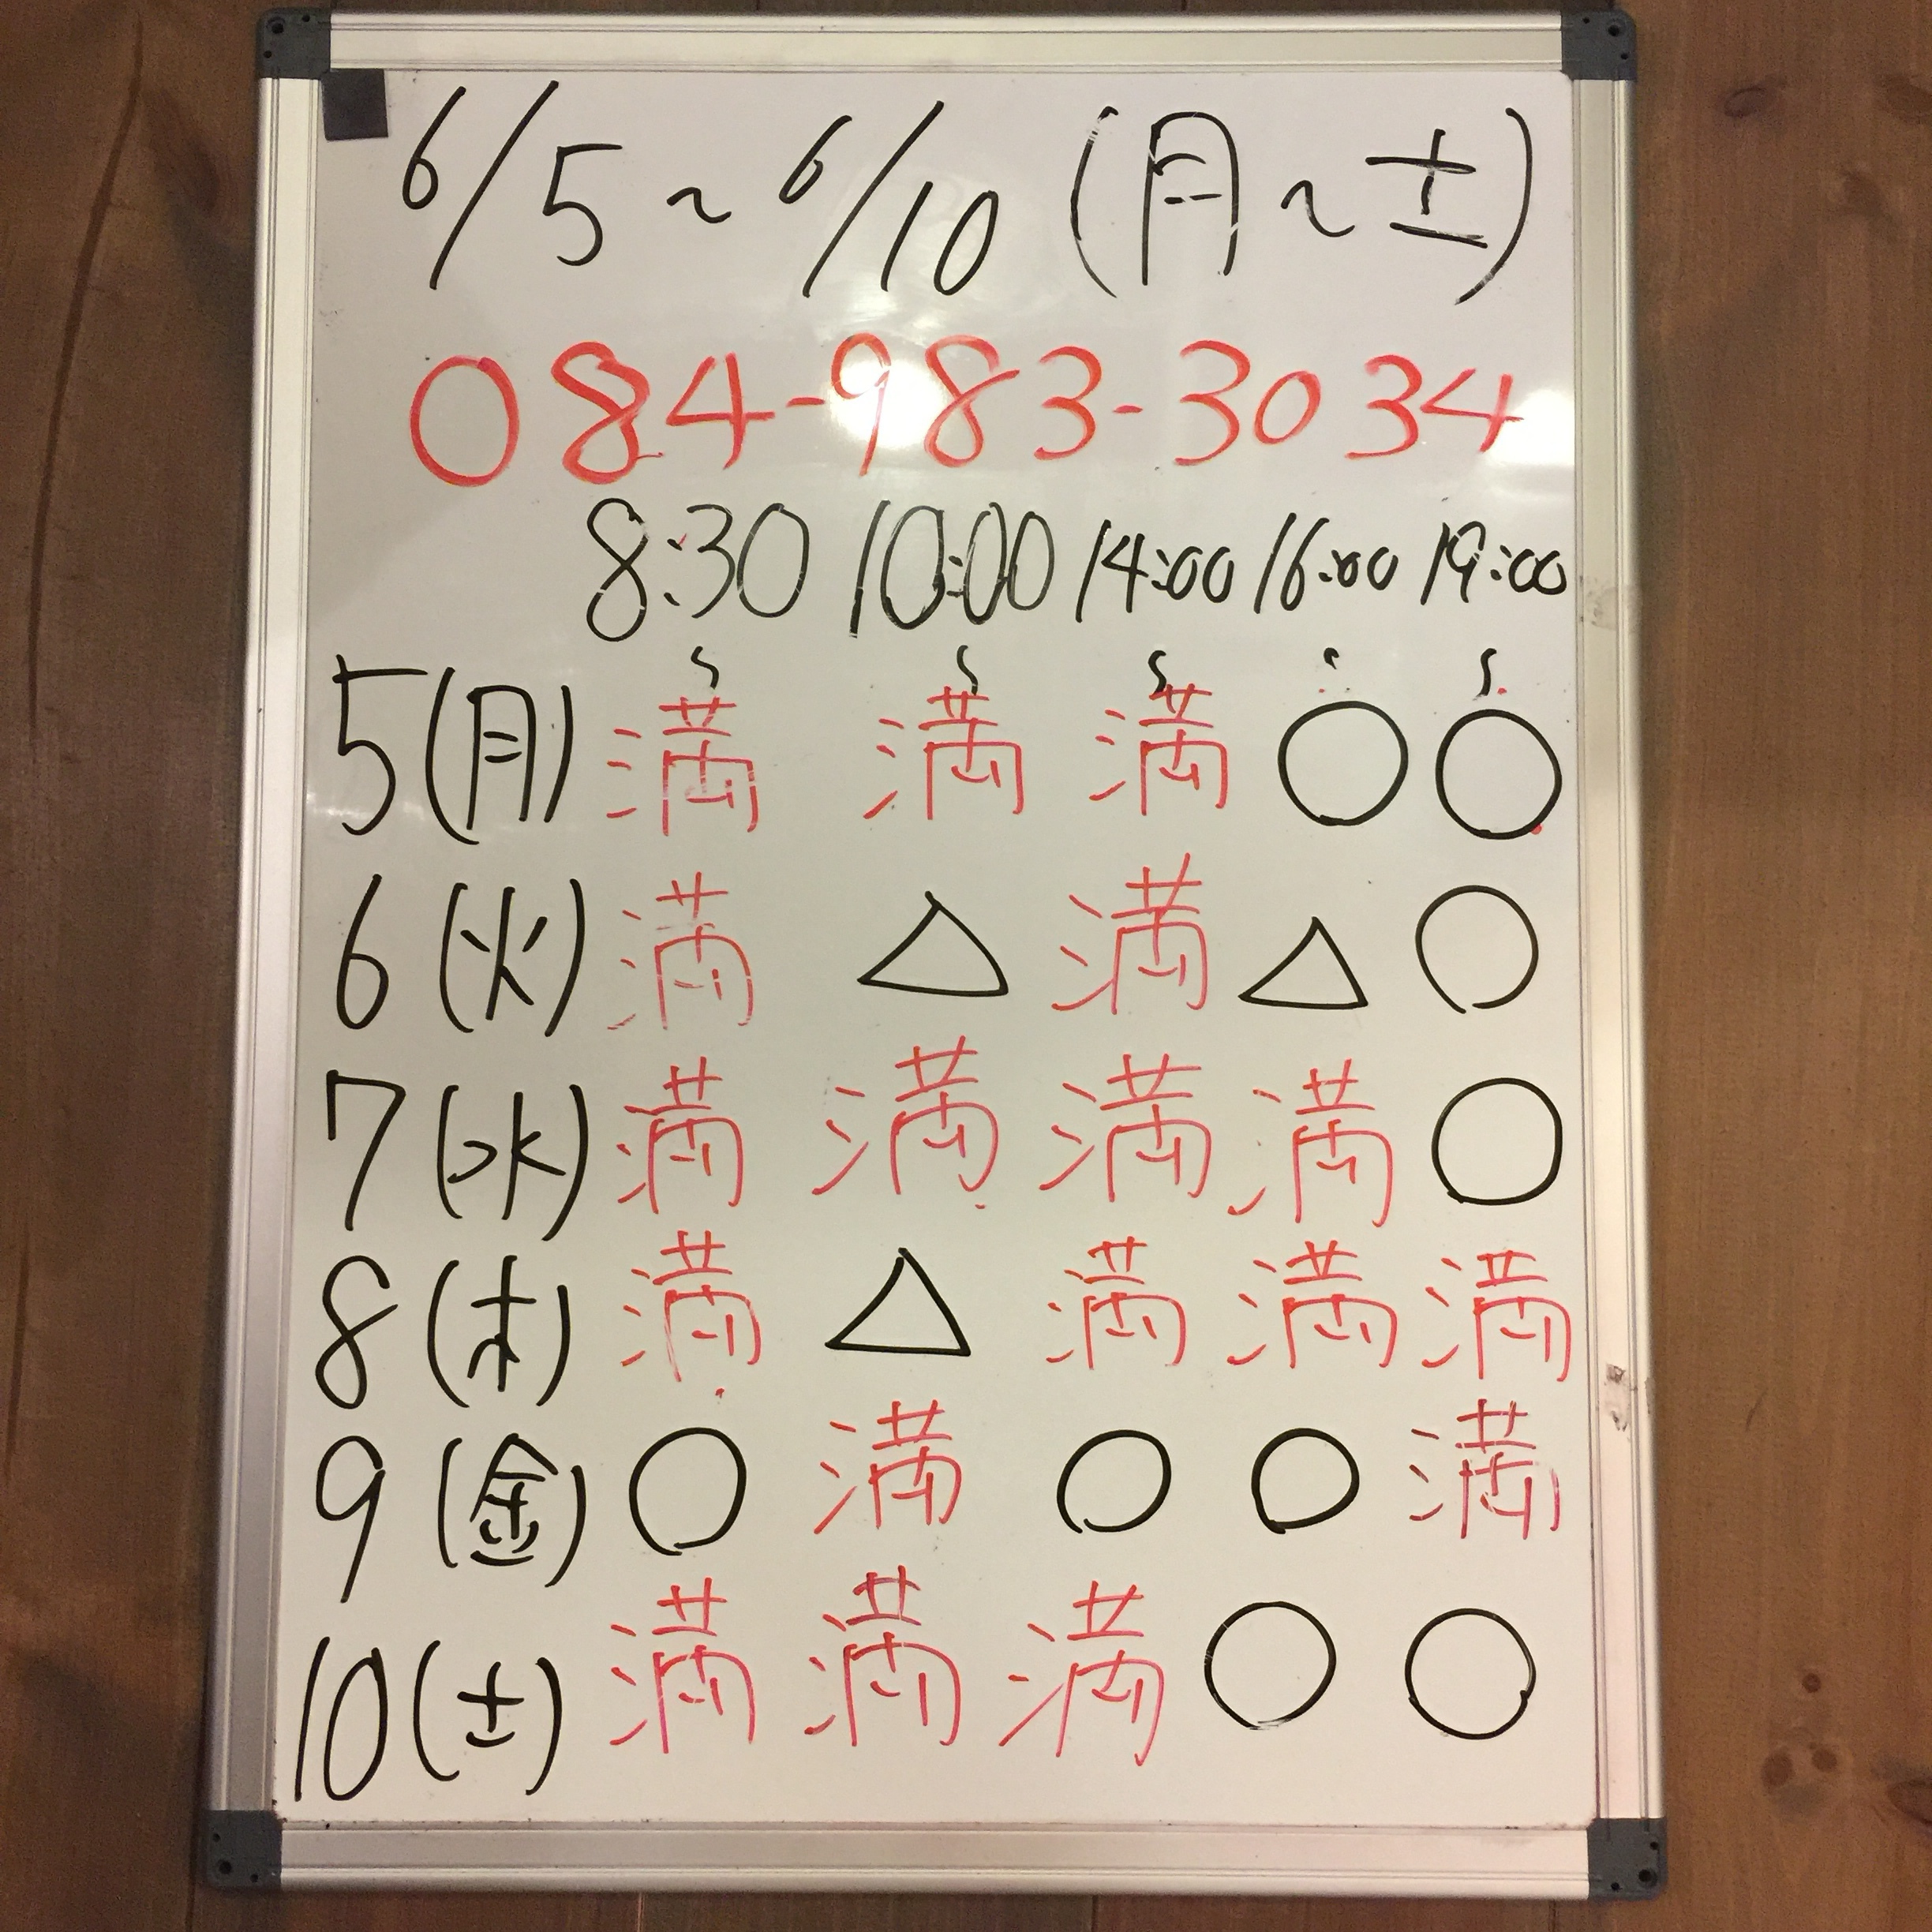 6/5~6/10(月~土)
084-983-3034
8:30 10:00 14:00 16:00 19:00
~ ~ ~ ~ ~
5(月) 満 満 満 ○ ○
6(火) 満 △ 満 △ ○
7(水) 満 満 満 満 ○
8(木) 満 △ 満 満 満
9(金) ○ 満 ○ ○ 満
10(土) 満 満 満 ○ ○